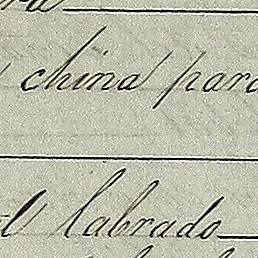 china para
labrado